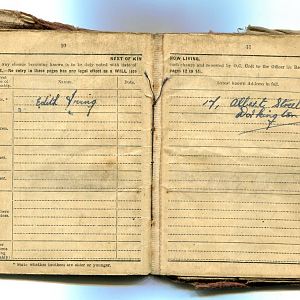 10
NEXT OF KIN
Any change becoming known is to be duly noted with date of
—No entry in these pages has any legal effort as a WILL (see
NAMES.
DATE.
Edith Irving
* State whether brothers are older or younger.
11
NOW LIVING.
such change and reported by O.C. Unit to the Officer i/c
pages 12 to 15).
Latest known Address in full.
17, Albert Street
Workington